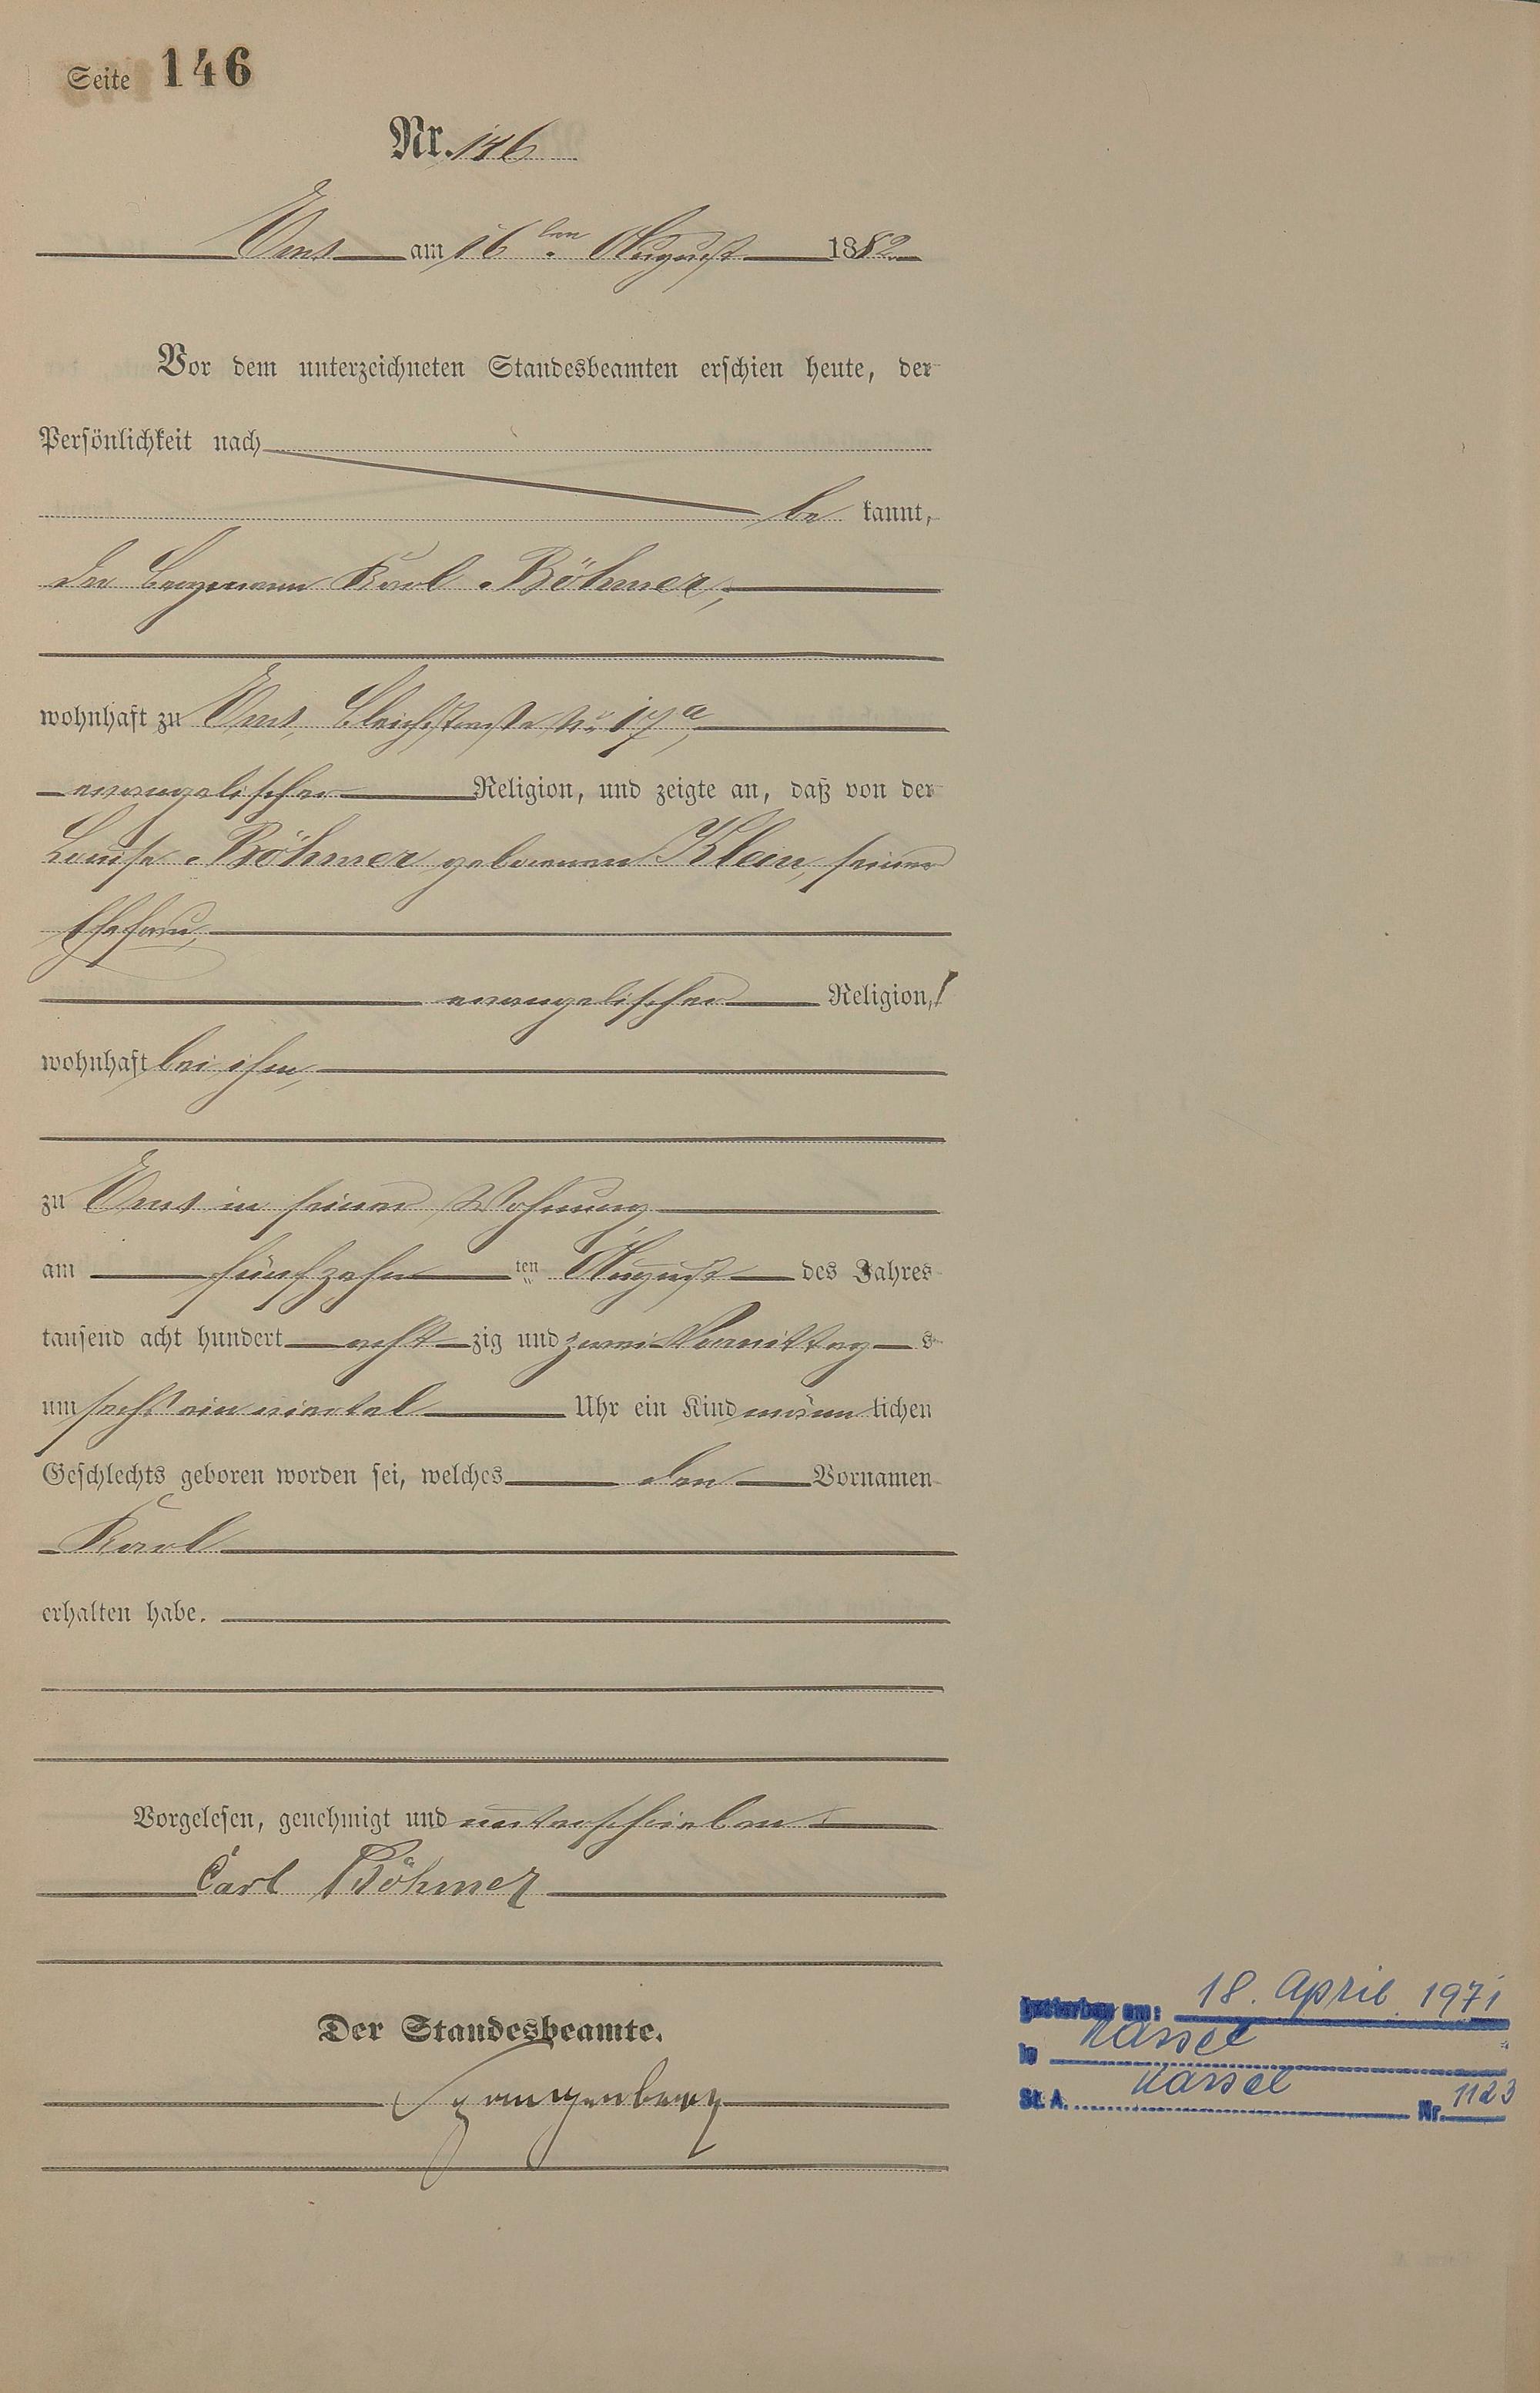 Seite 146
Nr. 146
Ems am 16ten August 1882
Vor dem unterzeichneten Standesbeamten erschien heute, der
Persönlichkeit nach
be kannt,
der Bergmann Karl Böhmer,
wohnhaft zu Ems, Bleichstraße No 17a,
evangelischer Religion, und zeigte an, daß von der
Louise Böhmer geborenen Klein, seiner
Ehefrau,
evangelischer Religion,
wohnhaft bei ihm,
zu Ems in seiner Wohnung
am fünfzehn ten August des Jahres
tausend acht hundert acht zig und zwei Vormittag s
um sechs ein viertel Uhr ein Kind männ lichen
Geschlechts geboren worden sei, welches den Vornamen
Karl
erhalten habe.
Vorgelesen, genehmigt und unterschrieben
Carl Böhmer
Der Standesbeamte.
Spangenberg
Gestorben am: 18. April 1971
in Kassel
St. A. Kassel Nr. 1123